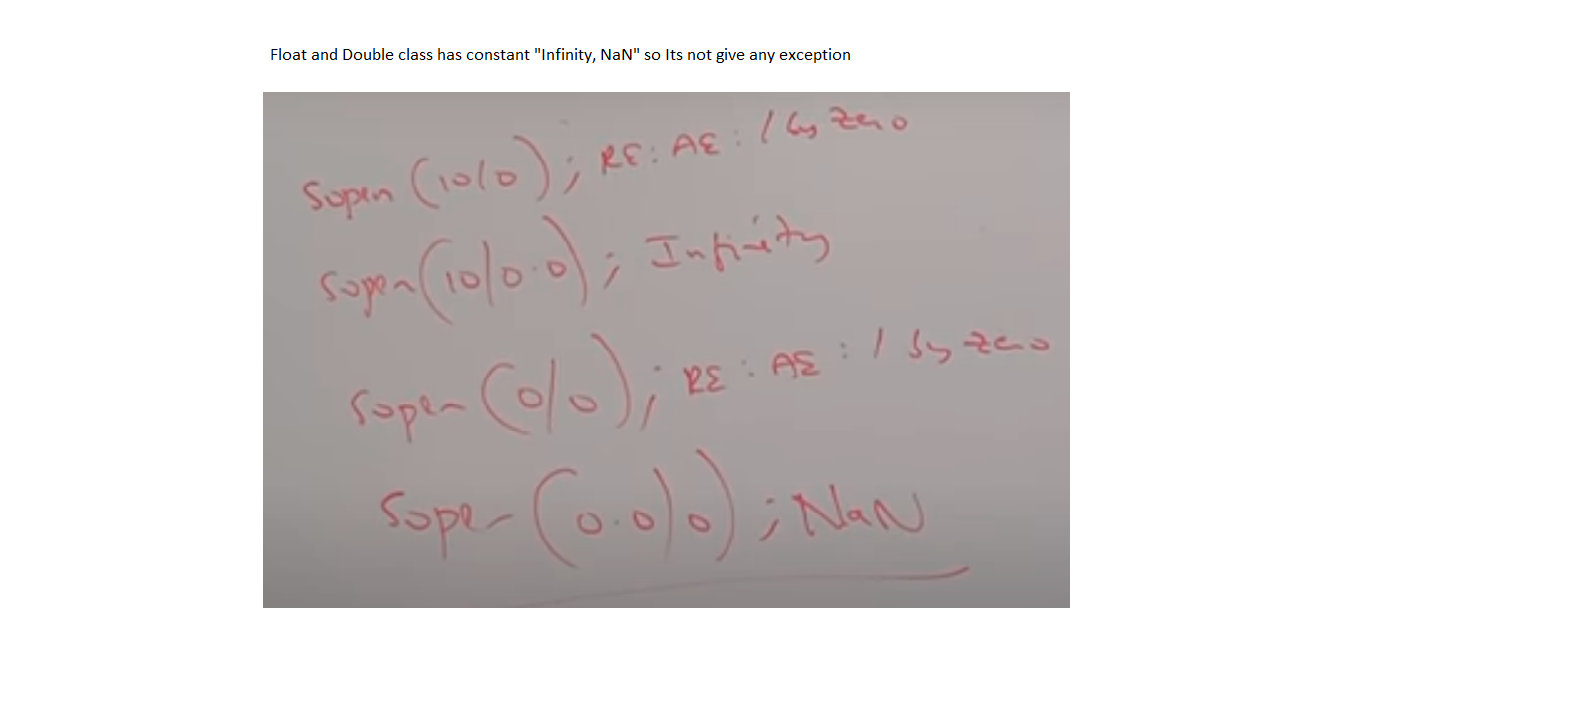 Float and Double class has constant "Infinity, NaN" so Its not give any exception
Sopln (10/0); RE: AE: / by zero
Sopln (10/0.0); Infinity
Sopln (0/0); RE: AE: / by zero
Sopln (0.0/0); NaN